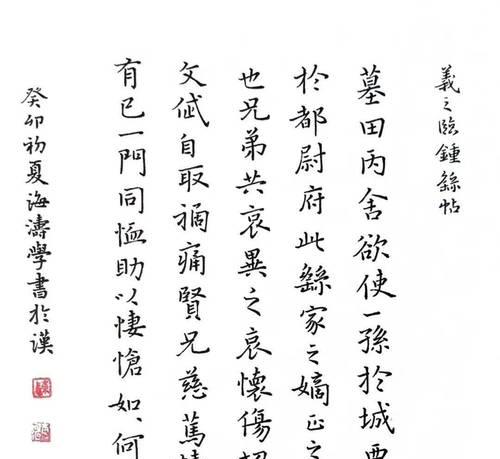 羲之临鍾繇帖
墓田丙舍欲使一孫於城西
於都尉府此繇家之嫡正之
也兄弟共哀異之哀懷傷切
文俶自取禍痛賢兄慈篤情
有已一門同恤助以悽愴如何
癸卯初夏海濤學書於漢